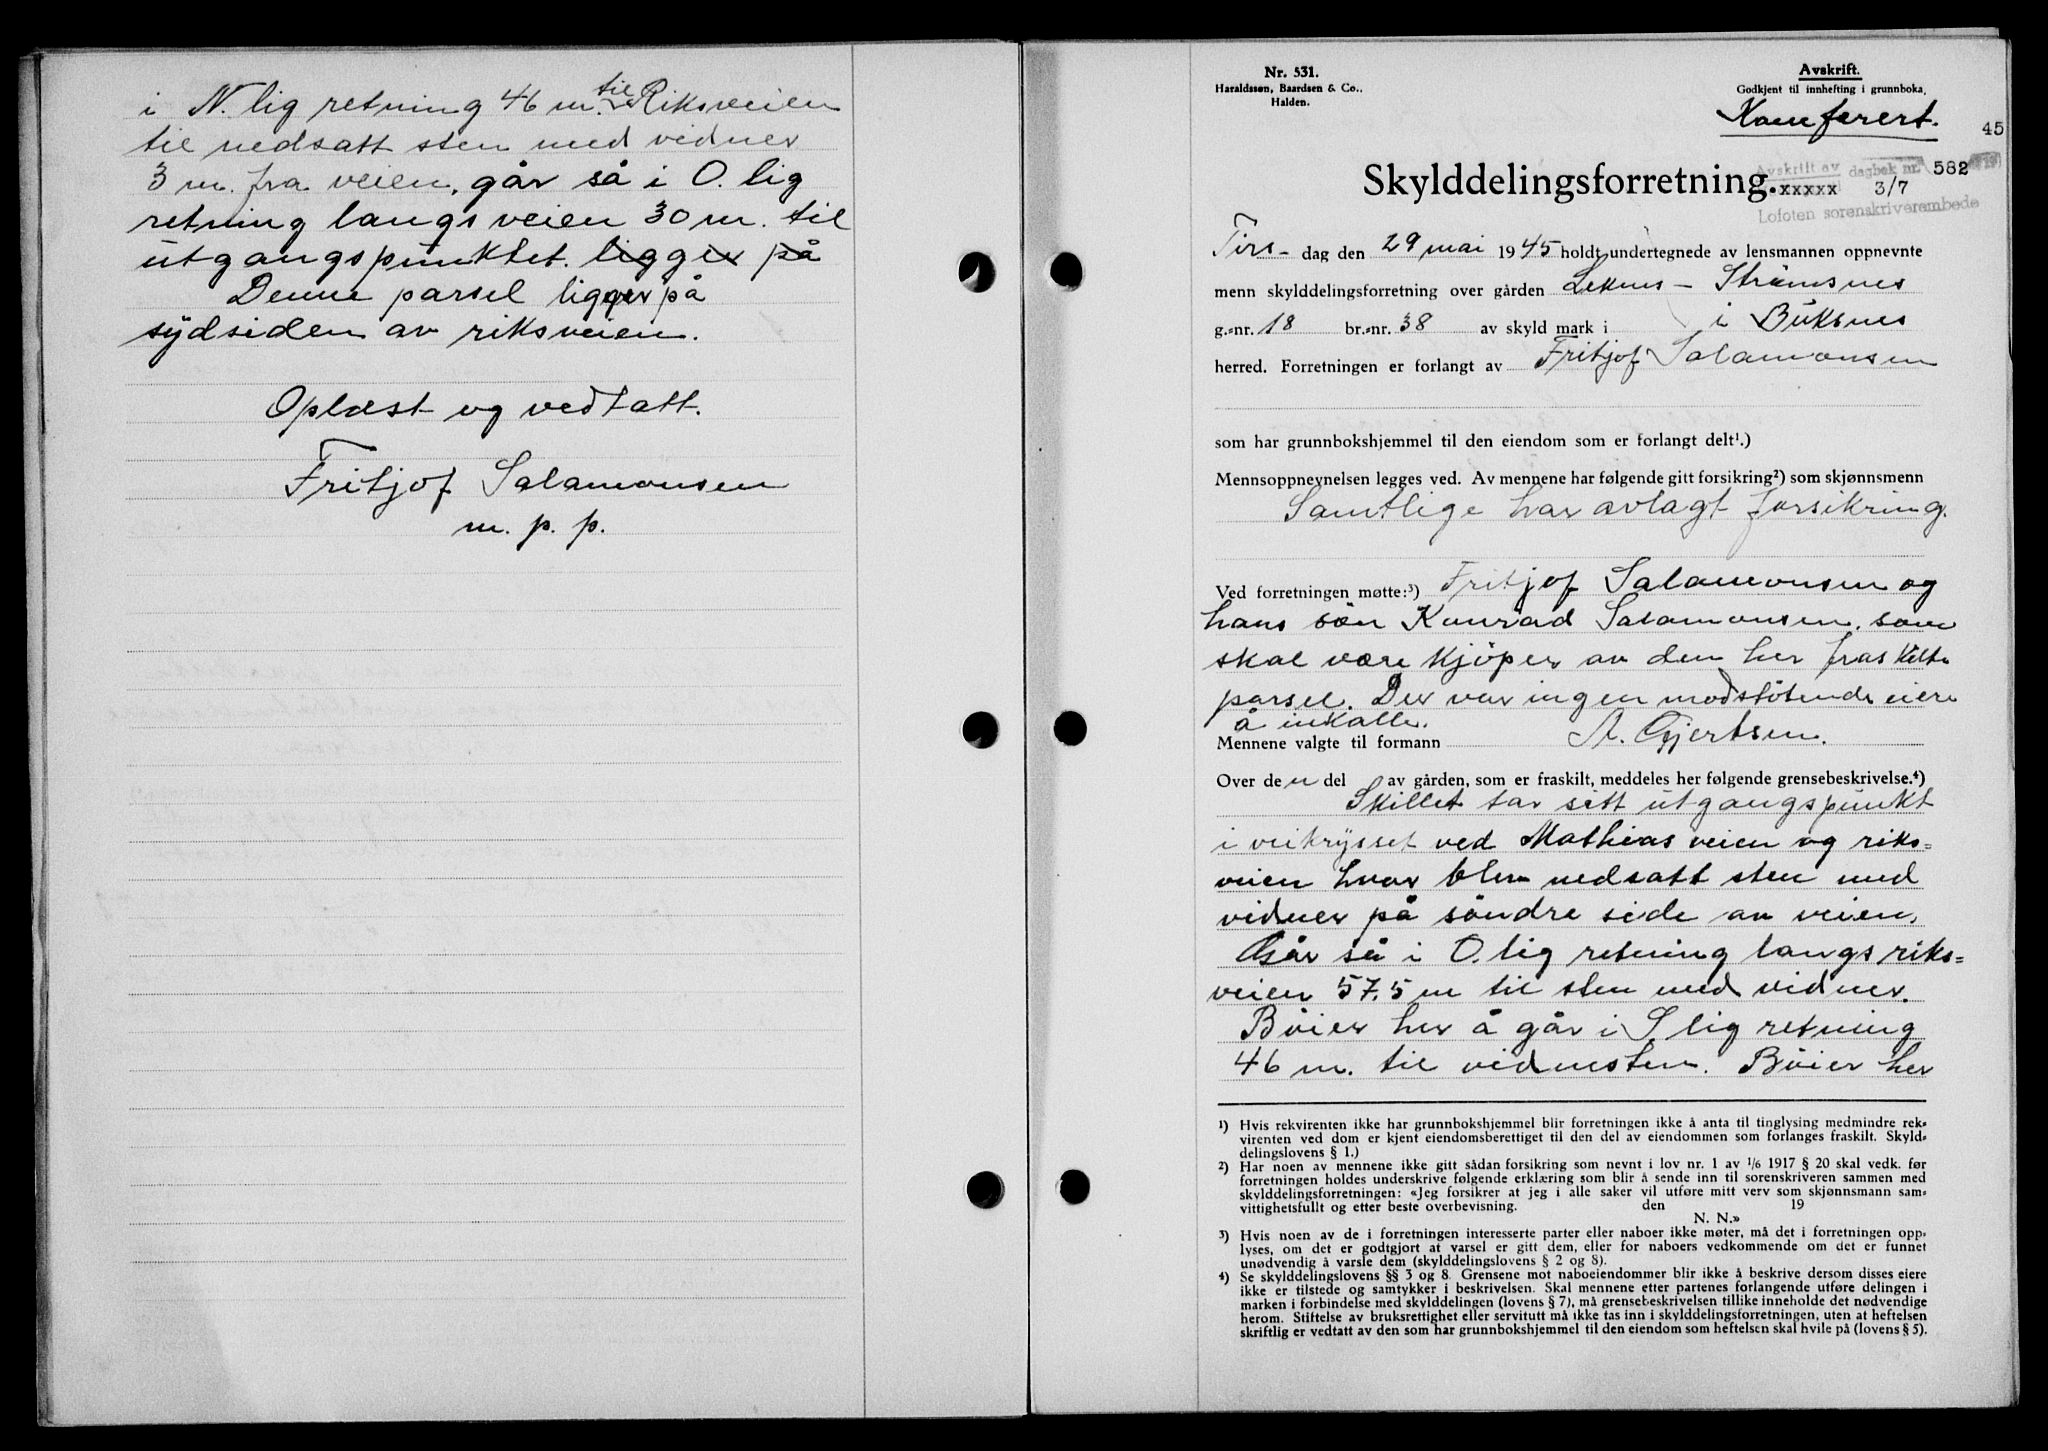 i N.lig retning 46 m. til Riksveien
til nedsatt sten med vidner
3 m. fra veien, går så i O.lig
retning langs veien 30 m. til
utgangspunktet. ligger på
Denne parsel ligger på
sydsiden av riksveien.
Oplæst og vedtatt.
Fritjof Salamonsen
m. p. p.
Nr. 531.
Haraldssøn, Baardsen & Co.,
Halden.
Avskrift.
Godkjent til innhefting i grunnboka.
Konferert.
45
Avskrift av dagbok nr. 582
Skylddelingsforretning.
xxxxx 3/7
Lofoten sorenskriverembede
Tirs- dag den 29 mai 1945 holdt undertegnede av lensmannen oppnevnte
menn skylddelingsforretning over gården Leknes - Strømsnes
g.-nr. 18 br.-nr. 38 av skyld mark i i Buksnes
herred. Forretningen er forlangt av Fritjof Salamonsen
som har grunnbokshjemmel til den eiendom som er forlangt delt¹.)
Mennsoppnevnelsen legges ved. Av mennene har følgende gitt forsikring²) som skjønnsmenn
Samtlige har avlagt forsikring.
Ved forretningen møtte:³) Fritjof Salamonsen og
hans søn Konrad Salamonsen, som
skal være kjøper av den her fraskilte
parsel. Der var ingen modstøtende eiere
å inkalle.
Mennene valgte til formann A. Gjertsen.
Over den del av gården, som er fraskilt, meddeles her følgende grensebeskrivelse.⁴)
Skillet tar sitt utgangspunkt
i veikrysset ved Mathias veien og riks=
veien hvor blev nedsatt sten med
vidner på söndre side av veien.
Går så i O.lig retning langs riks=
veien 57,5 m til sten med vidner.
Böier her å går i S lig retning
46 m. til vidnesten. Böier her
¹) Hvis rekvirenten ikke har grunnbokshjemmel blir forretningen ikke å anta til tinglysing medmindre rek-
virenten ved dom er kjent eiendomsberettiget til den del av eiendommen som forlanges fraskilt. Skyld-
delingslovens § 1.)
²) Har noen av mennene ikke gitt sådan forsikring som nevnt i lov nr. 1 av 1/6 1917 § 20 skal vedk. før
forretningen holdes underskrive følgende erklæring som blir å sende inn til sorenskriveren sammen med
skylddelingsforretningen: «Jeg forsikrer at jeg i alle saker vil utføre mitt verv som skjønnsmann sam-
vittighetsfullt og etter beste overbevisning. den 19
N. N.»
³) Hvis noen av de i forretningen interesserte parter eller naboer ikke møter, må det i forretningen opp-
lyses, om det er godtgjort at varsel er gitt dem, eller for naboers vedkommende om det er funnet
unødvendig å varsle dem (skylddelingslovens § 2 og 8).
⁴) Se skylddelingslovens §§ 3 og 8. Grensene mot naboeiendommer blir ikke å beskrive dersom disses eiere
ikke er tilstede og samtykker i beskrivelsen. Skal mennene etter partenes forlangende utføre delingen i
marken i forbindelse med skylddelingen (lovens § 7), må grensebeskrivelsen tillike inneholde det nødvendige
herom. Stiftelse av bruksrettighet eller servitutt må ikke tas inn i skylddelingsforretningen, uten at heftelsen
skriftlig er vedtatt av den som har grunnbokshjemmel til den eiendom som heftelsen skal hvile på (lovens § 5).